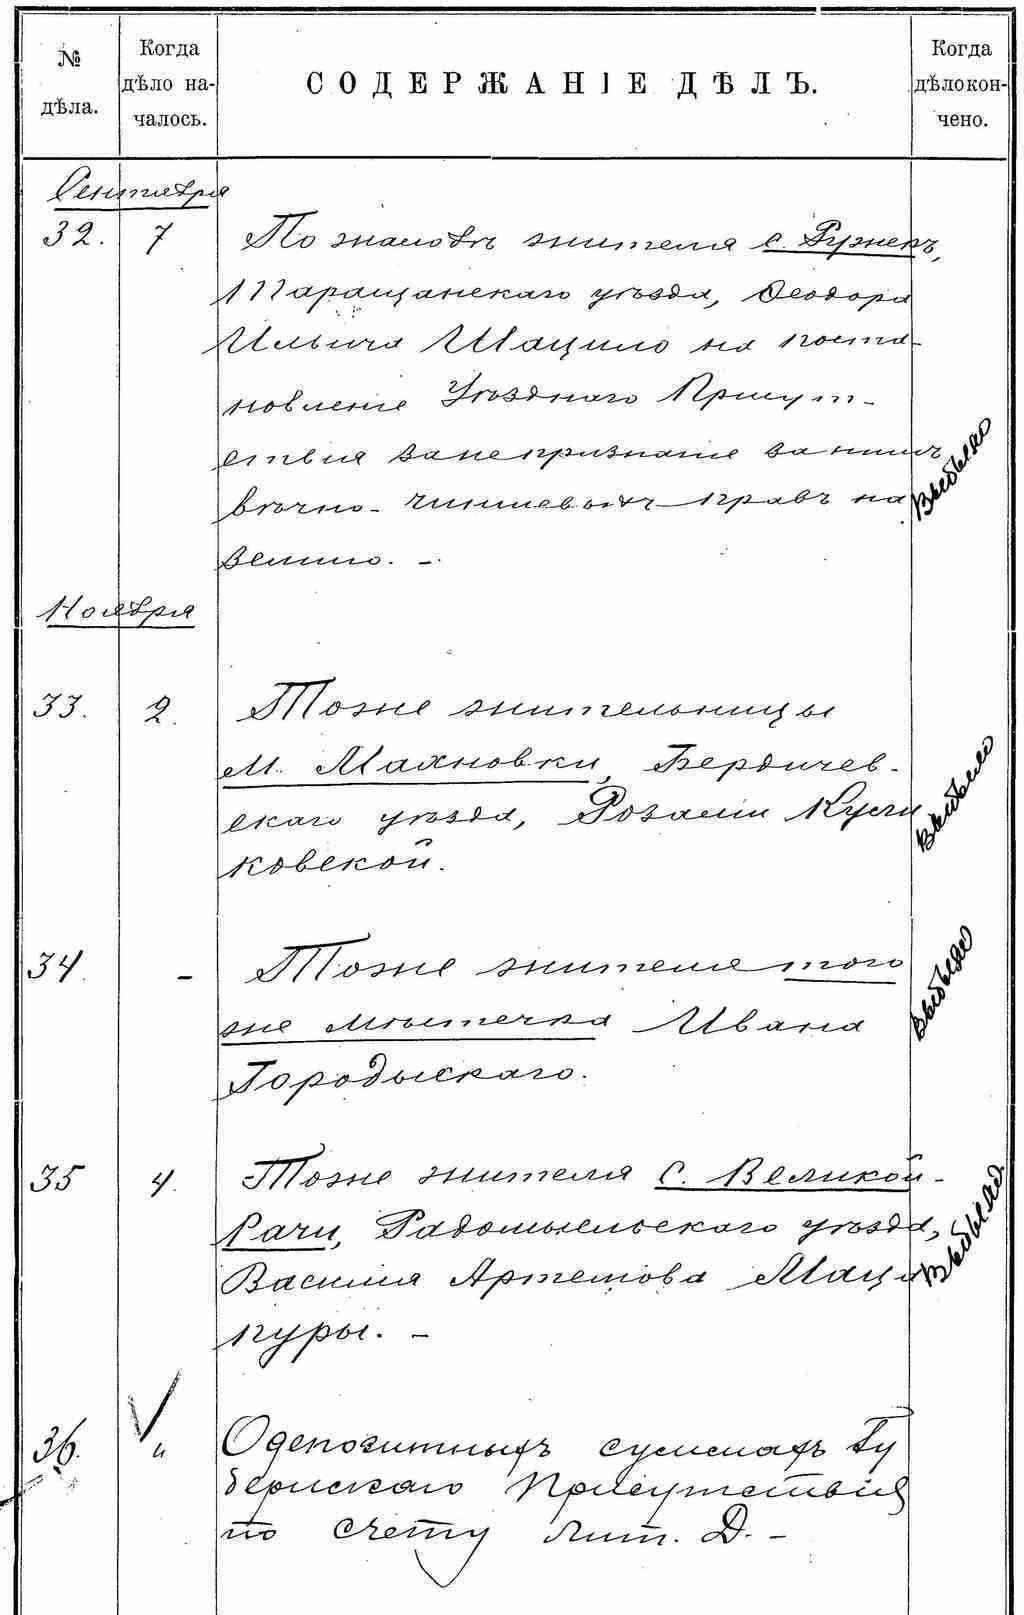 № дѣла.
Когда дѣло на-
чалось.
СОДЕРЖАНІЕ ДѢЛЪ.
Когда дѣло кон-
чено.
Сентября
32. 7 По жалобѣ жителя с. Ружекъ,
Таращанскаго уѣзда, Ѳеодора
Ильича Шацило на поста-
новленіе Уѣзднаго Присут-
ствія за непризнаніе за нимъ
вѣчно-чиншевыхъ правъ на
землю. -
Выбыло
Ноября
33. 2. Тоже жительницы
м. Махновки, Бердичев-
скаго уѣзда, Розаліи
ковской.
Выбыло
34. - Тоже жителя того
же мѣстечка Ивана
Городыскаго.
Выбыло
35 4. Тоже жителя с. Великой-
Рачи, Радомысльскаго уѣзда,
Василия Артемова Маца
пуры. -
Выбыло
36. " О депозитныхъ суммахъ Гу
бернскаго Присутствія
по счету лит. Д. -